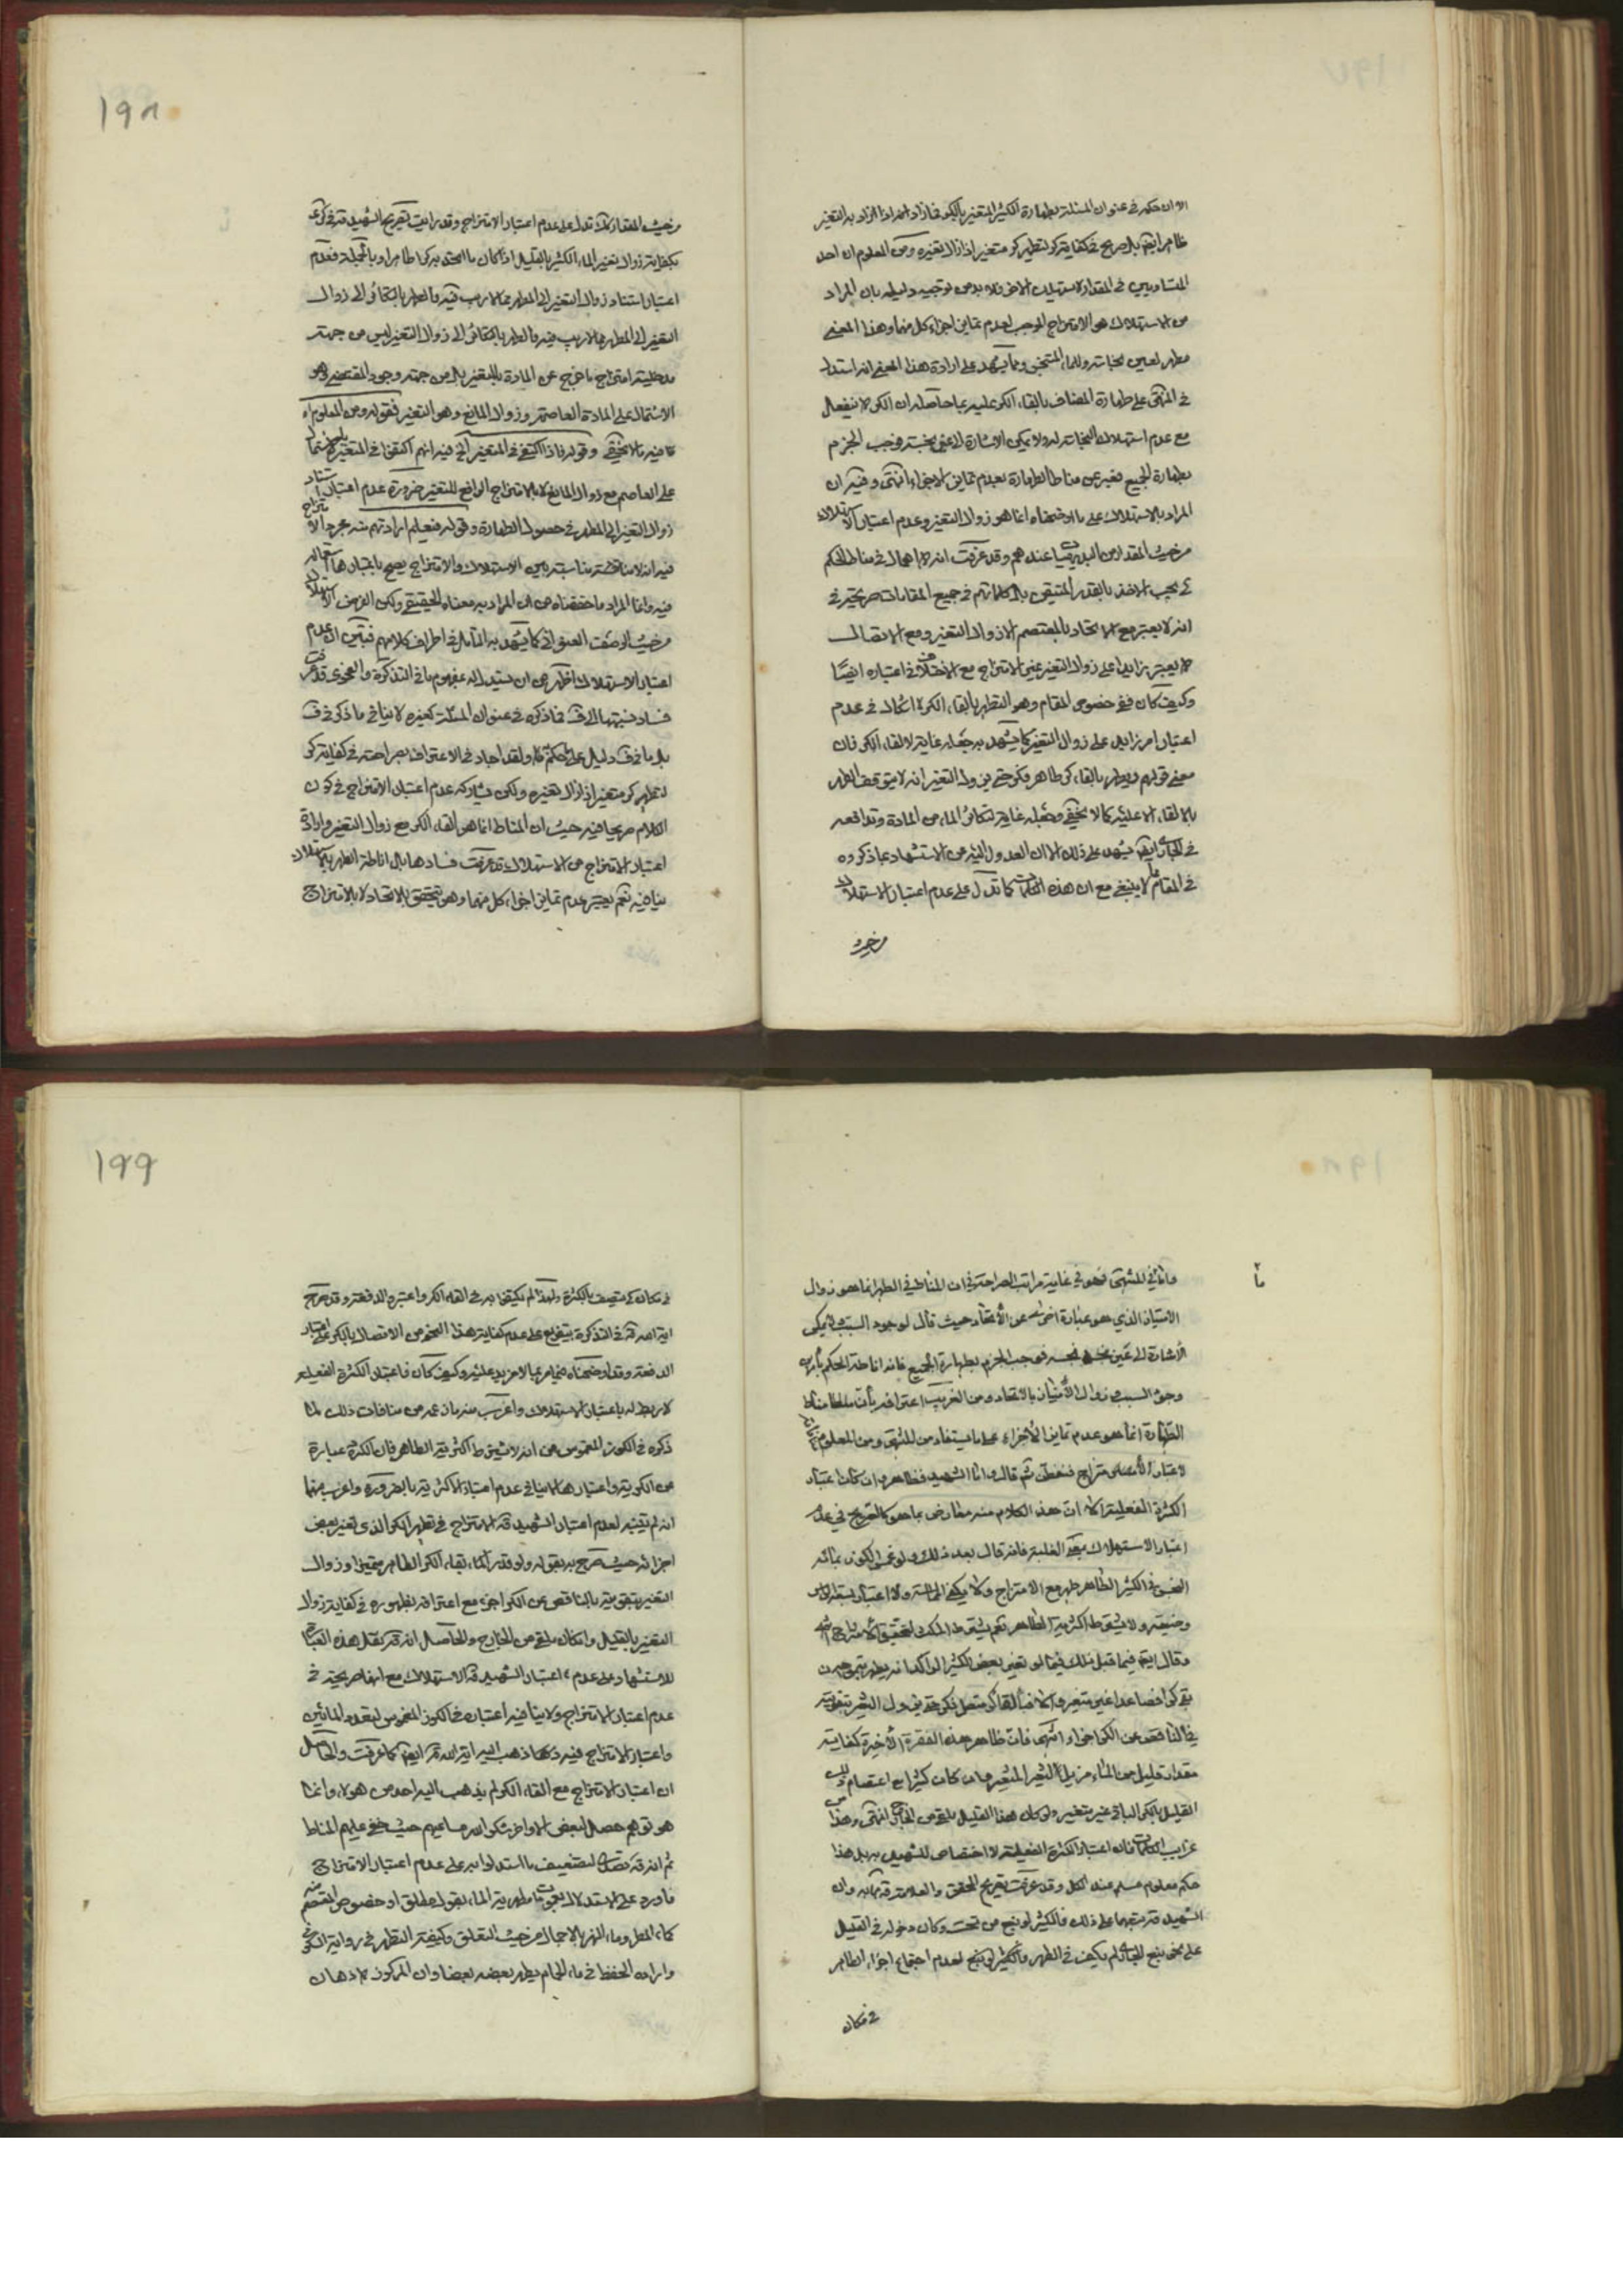 الا ان حكمه في عنوان المسئلة بطهارة الكثير المتغير بالكر فما زاد اذا زال به التغير
المتساويين في المقدار لا يستهلك الاخر فلا بد من توجيه دليله بان المراد
من الاستهلاك هو الامتزاج الموجب لعدم تمايز اجزاء كل منهما وهذا المعنى
في المنتهى على طهارة المضاف بالقاء الكر عليه بما حاصله ان الكر لا ينفعل
مع عدم استهلاك النجاسة له ولا يمكن الاشارة الى عين نجسة فوجب الجزم
بطهارة الجميع فعبر عن مناط الطهارة بعدم تمايز الاجزاء انتهى وفيه ان
المراد بالاستهلاك على ما اوضحناه انما هو زوال التغير وعدم اعتبار الاستهلاك
من حيث المقدار من البديهيات عندهم وقد عرفت انه لا اهمال في مناط الحكم
كي يجب الاخذ بالقدر المتيقن بل كلماتهم في جميع المقامات صريحة في
انه لا يعتبر مع الاتحاد بالمعتصم الا زوال التغير ومع الاتصال
لا يعتبر زايدا على زوال التغير غير الامتزاج مع الاختلاف في اعتباره ايضا
وكيف كان ففي خصوص المقام وهو التطهر بالقاء الكر لا اشكال في عدم
اعتبار امر زايد على زوال التغير كما يشهد به جعله غاية لالقاء الكر فان
معنى قولهم ويطهر بالقاء كر طاهر فكر حتى يزول التغير انه لا يتوقف الطهر
بالالقاء الا عليه كما لا يخفى وجعله غاية لتكاثر الماء من المادة وتدافعه
في الجاري ايضا يشهد على ذلك الا ان العدول اليه من الاستشهاد بما ذكروه
في المقام مما لا ينبغي مع ان هذه الكلمات كما تدل على عدم اعتبار الاستهلاك
من حيث
١٩٨
من حيث المقدار كذلك تدل على عدم اعتبار الامتزاج وقد رايت تصريح الشهيد قده في كرى
بكفاية زوال تغير الماء الكثير بالقليل اذا كان ما اتحد به كرا طاهرا وبالجملة فعدم
اعتبار استناد زوال التغير الى المطهر مما لا ريب فيه والطهر بالتكاثر الى زوال
التغير الى المطهر مما لا ريب فيه والطهر بالتكاثر الى زوال التغير ليس من جهة
مدخلية امتزاج ما خرج عن المادة بالمتغير بل من جهة وجود المقتضي وهو
الاشتمال على المادة العاصمة وزوال المانع وهو التغير فقوله ومن المعلوم اه
فيه ما لا يخفى وقوله فاذا اكتفى في المتغير الخ فيه انهم اكتفوا في المتغير
على العاصم مع زوال المانع لا بالامتزاج الرافع للتغير ضرورة عدم اعتبار استناد
زوال التغير الى المطهر في حصول الطهارة وقوله فيعلم ارادتهم منه مجرد الامتزاج
فيه انه لا مناقضة مناسبة بين الاستهلاك والامتزاج يصح باعتبارها استعماله
فيه وانما المراد ما حققناه من ان المراد به معناه الحقيقي ولكن الغرض الاستهلاك
من حيث الوصف العنواني كما يشهد به التامل في اطراف كلامهم فتبين ان عدم
اعتبار الاستهلاك اظهر من ان يستدل له بمفهوم ما في التذكرة والعجزى قد عرفت
فساد نسبتها الى ف فما ذكره في عنوان المسئلة كغيره لا ينافي ما ذكره في ف
بل ما في ف دليل على الحكم ولقد اجاد في الاعتراف بصراحته في كفاية كر
لتطهر كر متغير اذا زال تغيره ولكن يشاركه عدم اعتبار الامتزاج في كون
الكلام صريحا فيه حيث ان المناط انما هو القاء الكر مع زوال التغير وارادة
اعتبار الامتزاج من الاستهلاك قد عرفت فسادها بل اناطة الطهر بالاستهلاك
ينافيه نعم يعتبر عدم تمايز اجزاء كل منهما وهو يتحقق بالاتحاد لا بالامتزاج
واما في المنتهى فهو في غاية مراتب الصراحة في ان المناط في الطهر انما هو زوال
الامتياز الذي هو عبارة اخرى عن الاتحاد حيث قال لوجود السبب ولا يمكن
الاشارة الى عين نجسة فوجب الجزم بطهارة الجميع فانه اناطة الحكم بامرين
وجود السبب وزوال الامتياز بالاتحاد ومن الغريب اعترافه بان مناط
الطهارة انما هو عدم تمايز الاجزاء على ما يستفاد من المنتهى ومن المعلوم
لاعتبار الامتزاج فتفطن ثم قال واما الشهيد فظاهره ان كان اعتبار
الكثرة الفعلية الا ان هذا الكلام منه معارض بما هو كالصريح في عدم
اعتبار الاستهلاك بمعنى الغلبة فانه قال بعد ذلك ولو غمس الكوز بمائه
النجس في الكثير الطاهر طهر مع الامتزاج ولا يكفي المماسة ولا اعتبار بسعة الراس
وضيقه ولا يشترط اكثرية الطاهر نعم يشترط المكث ليتحقق الامتزاج انتهى
وقال ايضا فيما قبل ذلك فيما لو تغير بعض الكثير الراكد انه يطهر بتموجه ان
بقي كرا فصاعدا غير متغير والا فبالقاء كر متصل فكر حتى يزول التغير بتموجه
في الناقص عن الكر اجزاء انتهى فان ظاهر هذه الفقرة الاخيرة كفاية
مقدار قليل من الماء مزيل لتغير المتغير وان كان كثيرا مع اعتصام ذلك
القليل بالكر الباقي غير متغير ولو كان هذا القليل يلقى من الخارج انتهى وهذا من
غرايب الكلمات فان اعتبار الكثرة الفعلية لا اختصاص للشهيد به بل هذا
حكم معلوم مسلم عند الكل وقد عرفت تصريح المحقق والعلامة قدهما به وان
الشهيد قده تبعهما على ذلك فالكثير لو نبع من تحت وكان دخوله في القليل
على نحو نبع الجاري لم يكف في الطهر والكثير لو نبع لعدم اجتماع اجزاء الطاهر
في مكان
١٩٩
في مكان كي يتصف بالكثرة ولهذا لم يكتفوا به في القاء الكر واعتبره الدفعة وقد صرح
اية الله قده في التذكرة بتفريع على عدم كفاية هذا النحو من الاتصال بالكر على اعتبار
الدفعة وقد اوضحناه فيما مر بما لا مزيد عليه وكيف كان فاعتبار الكثرة الفعلية
لا ربط له باعتبار الاستهلاك واغرب منه ما زعمه من منافات ذلك لما
ذكره في الكوز المغموس من انه لا يشترط اكثرية الطاهر فان الكثرة عبارة
عن الكرية واعتبارها لا ينافي عدم اعتبار الاكثرية بالضرورة واغرب منهما
انه لم يتنبه لعدم اعتبار الشهيد قده الامتزاج في تطهر الكر الذي تغير بعض
اجزائه حيث صرح به بقوله ولو قدر بقاء الكر الطاهر متميزا وزوال
التغير بتقويته بالناقص عن الكر اجزء مع اعترافه بظهوره في كفاية زوال
التغير بالقليل وامكان يلقى من الخارج والحاصل انه قده نقل هذه العبارة
للاستشهاد على عدم اعتبار الشهيد قده الاستهلاك مع انها صريحة في
عدم اعتبار الامتزاج ولا ينافيه اعتباره في الكوز المغموس لتعدد المائين
واعتبار الامتزاج فيه مما ذهب اليه اية الله قده ايضا كما عرفت والحاصل
ان اعتبار الامتزاج مع القاء الكر لم يذهب اليه احد من هولاء وانما
هو توهم حصل لبعض الاواخر شكر الله مساعيهم حيث خفى عليهم المناط
ثم انه قده تصدى لتضعيف ما استدلوا به على عدم اعتبار الامتزاج
فاورد على الاستدلال بعمومات مطهرية الماء بقول مطلق او خصوص قسم منه
كماء المطر وماء النهر بالاجمال من حيث المتعلق وكيفية التطهر في رواية السكوني
وارادة الحفظ في ماء الحمام يطهر بعضه بعضا وان المركوز الاذهان